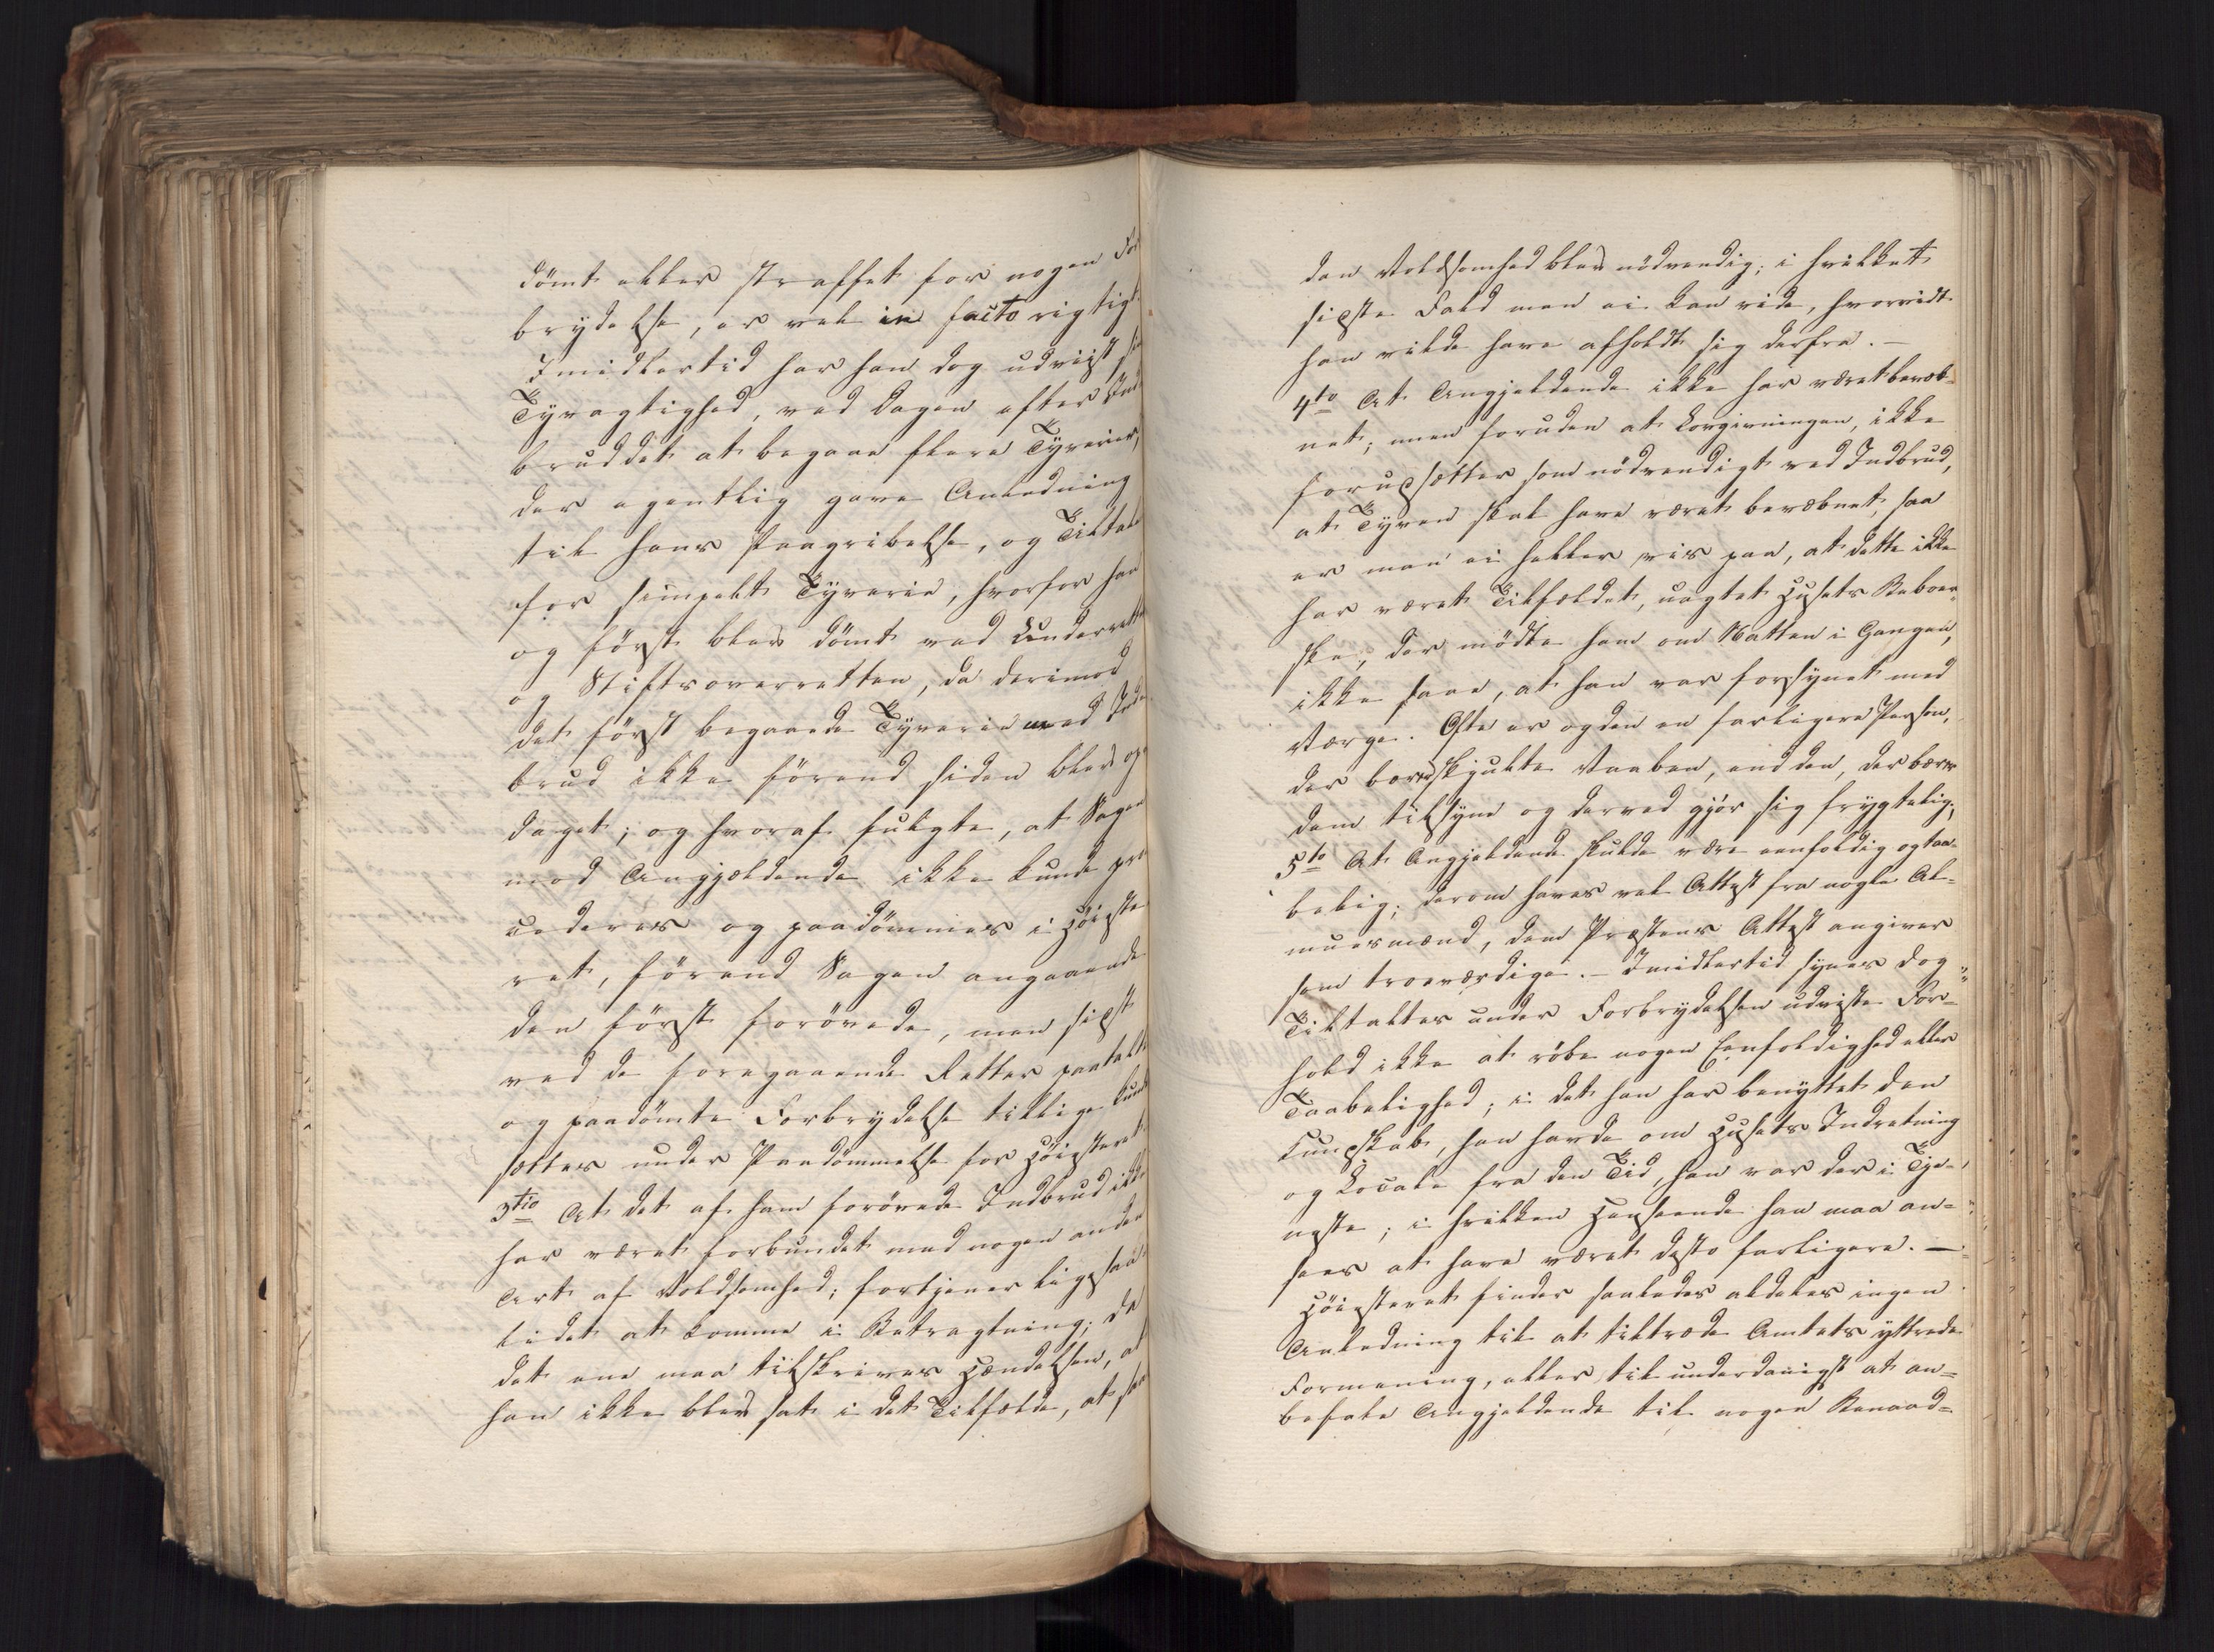 dömt eller straffet for nogen For
brydelse, er vel in facto rigtigt
Imidlertid har han dog udviist sin
Tyvagtighed, ved Dagen efter Ind
bruddet at begaae flere Tyverier,
der egentlig gave Anledning
til hans Paagribelse, og Tiltale
for simpelt Tyverie, hvorfor han
og först blev dömt ved Underretten
og Stiftsoverretten, da derimod
det först begaaede Tyverie med Ind
brud ikke förend siden blev op
daget; og hvoraf fulgte, at Sagen
mod Angjældende ikke kunde pro
cederes og paadömmes i Höieste
ret, förend Sagen angaaende
den först forövede, men sidst
ved de foregaaende Retter paatalte
og paadömte Forbrydelse tillige kunde
sættes under Paadömmelse for Höiesteret.
3tio At det af ham forövede Indbrud ikke
har været forbundet med nogen anden
Art af Voldsomhed; fortjener ligesaa
lidet at komme i Betragtning; da
det ene maa tilskrives Hændelsen, at
han ikke blev sat i det Tilfælde, at saa
dan Voldsomhed blev nödvendig; i hvilket
sidste Fald man ei kan vide, hvorvidt
han vilde have afholdt sig derfra. —
4to At Angjeldende ikke har været bevæb-
net; men foruden at Lovgivningen, ikke
forudsætter som nödvendigt ved Indbrud,
at Tyven skal have været bevæbnet, saa
er man ei heller vis paa, at dette ikke
har været Tilfældet, uagtet Husets Beboer-
ske, der mödte ham om Natten i Gangen,
ikke saae, at han var forsynet med
Værge. Ofte er og den en farligere Person,
der bærer skjulte Vaaben, end den, der bærer
dem tilsyne og derved gjör sig frygtelig;
5to At Angjeldende skulde være eenfoldig og taa-
belig; derom haves vel Attest fra nogle Al-
muesmænd, dem Præstens Attest angiver
som troværdige. — Imidlertid synes dog
Tiltaltes under Forbrydelsen udviste For-
hold ikke at röbe nogen Eenfoldighed eller
Taabelighed; i det han har benyttet den
Kundskab, han havde om Husets Indretning
og Locale fra den Tid, han var der i Tje-
neste; i hvilken Henseende han maa an-
sees at have været desto farligere. —
Höiesteret finder saaledes aldeles ingen
Anledning til at tiltræde Amtets yttrede
Formening, eller til underdanigst at an-
befale Angjeldende til nogen Benaad-